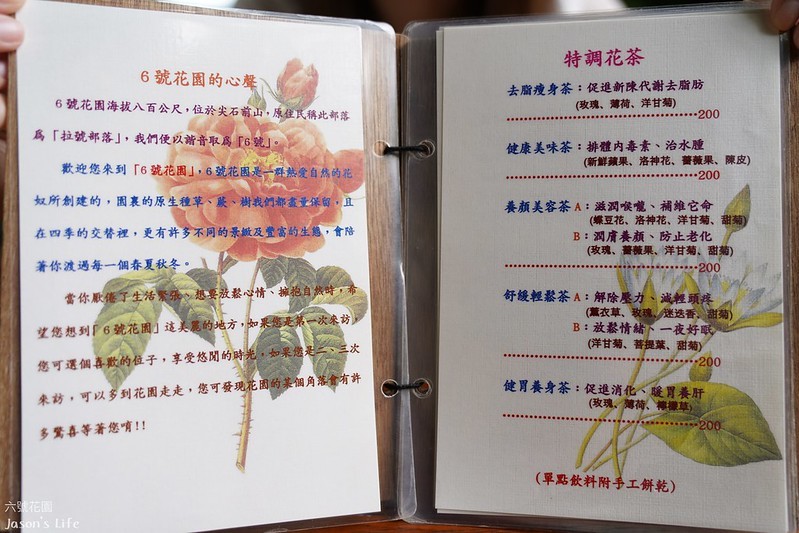 6號花園的心聲
6號花園海拔八百公尺，位於尖石前山，原住民稱此部落
為「拉號部落」，我們便以諧音取為「6號」。
歡迎您來到「6號花園」，6號花園是一群熱愛自然的花
奴所創建的，園裏的原生種草、蕨、樹我們都盡量保留，且
在四季的交替裡，更有許多不同的景緻及豐富的生態，會陪
著你渡過每一個春夏秋冬。
當你厭倦了生活緊張、想要放鬆心情、擁抱自然時，希
望您想到「6號花園」這美麗的地方，如果您是第一次來訪，
您可選個喜歡的位子，享受悠閒的時光，如果您是二、三次
來訪，可以多到花園走走，您可發現花園的某個角落會有許
多驚喜等著您唷!!
六號花園
Jason's Life
特調花茶
去脂瘦身茶：促進新陳代謝去脂肪
(玫瑰、薄荷、洋甘菊)
200
健康美味茶：排體內毒素、治水腫
(新鮮蘋果、洛神花、薔薇果、陳皮)
200
養顏美容茶 A：滋潤喉嚨、補維它命
(蝶豆花、洛神花、洋甘菊、甜菊)
B：潤膚養顏、防止老化
(玫瑰、薔薇果、洋甘菊、甜菊)
200
舒緩輕鬆茶 A：解除壓力、減輕頭疼
(薰衣草、玫瑰、迷迭香、甜菊)
B：放鬆情緒、一夜好眠
(洋甘菊、菩提葉、甜菊)
200
健胃養身茶：促進消化、暖胃養肝
(玫瑰、薄荷、檸檬草)
200
(單點飲料附手工餅乾)